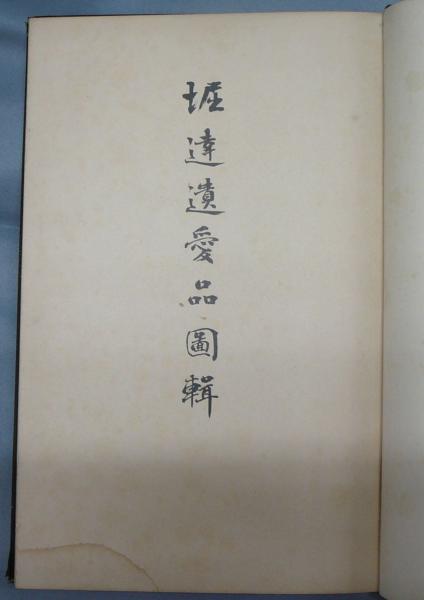 堀達遺愛品圖輯